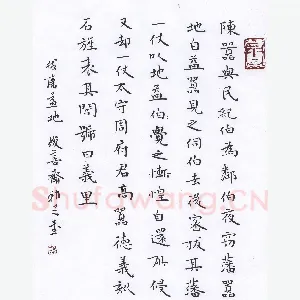 陳囂與民紀伯為鄰伯夜竊藩囂
地自益囂見之伺伯去後密拔其藩
一丈以地益伯覺之慚惶自還所侵
又却一丈太守周府君高囂德義刻
石旌表其閭號曰義里
拔藩益地
Shufawang.CN